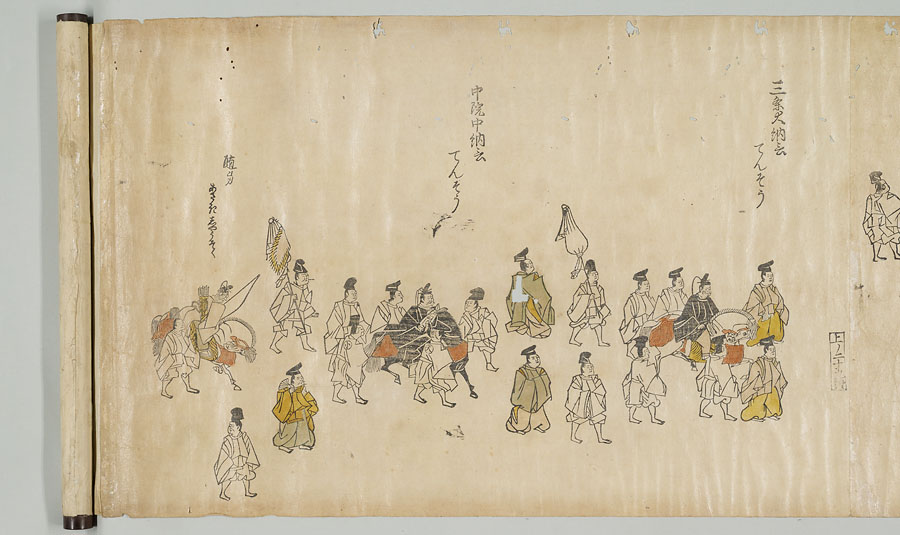 三条大納言
てんそう
中院中納言
てんそう
随身